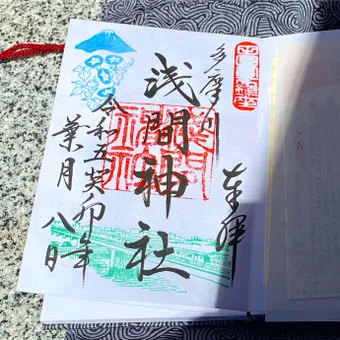 奉拝
多摩川
浅間神社
令和五癸卯年
葉月八日